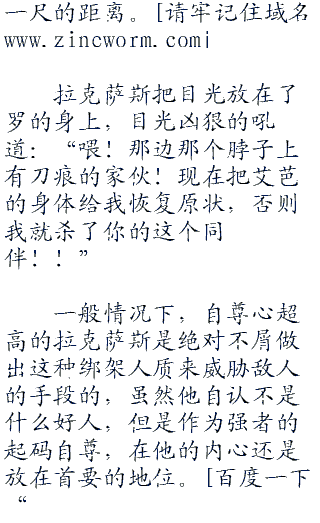 一尺的距离。[请牢记住域名
www.zincworm.com|
拉克萨斯把目光放在了
罗的身上，目光凶狠的吼
道：“喂！那边那个脖子上
有刀痕的家伙！现在把艾芭
的身体给我恢复原状，否则
我就杀了你的这个同
伴！！”
一般情况下，自尊心超
高的拉克萨斯是绝对不屑做
出这种绑架人质来威胁敌人
的手段的，虽然他自认不是
什么好人，但是作为强者的
起码自尊，在他的内心还是
放在首要的地位。[百度一下
“